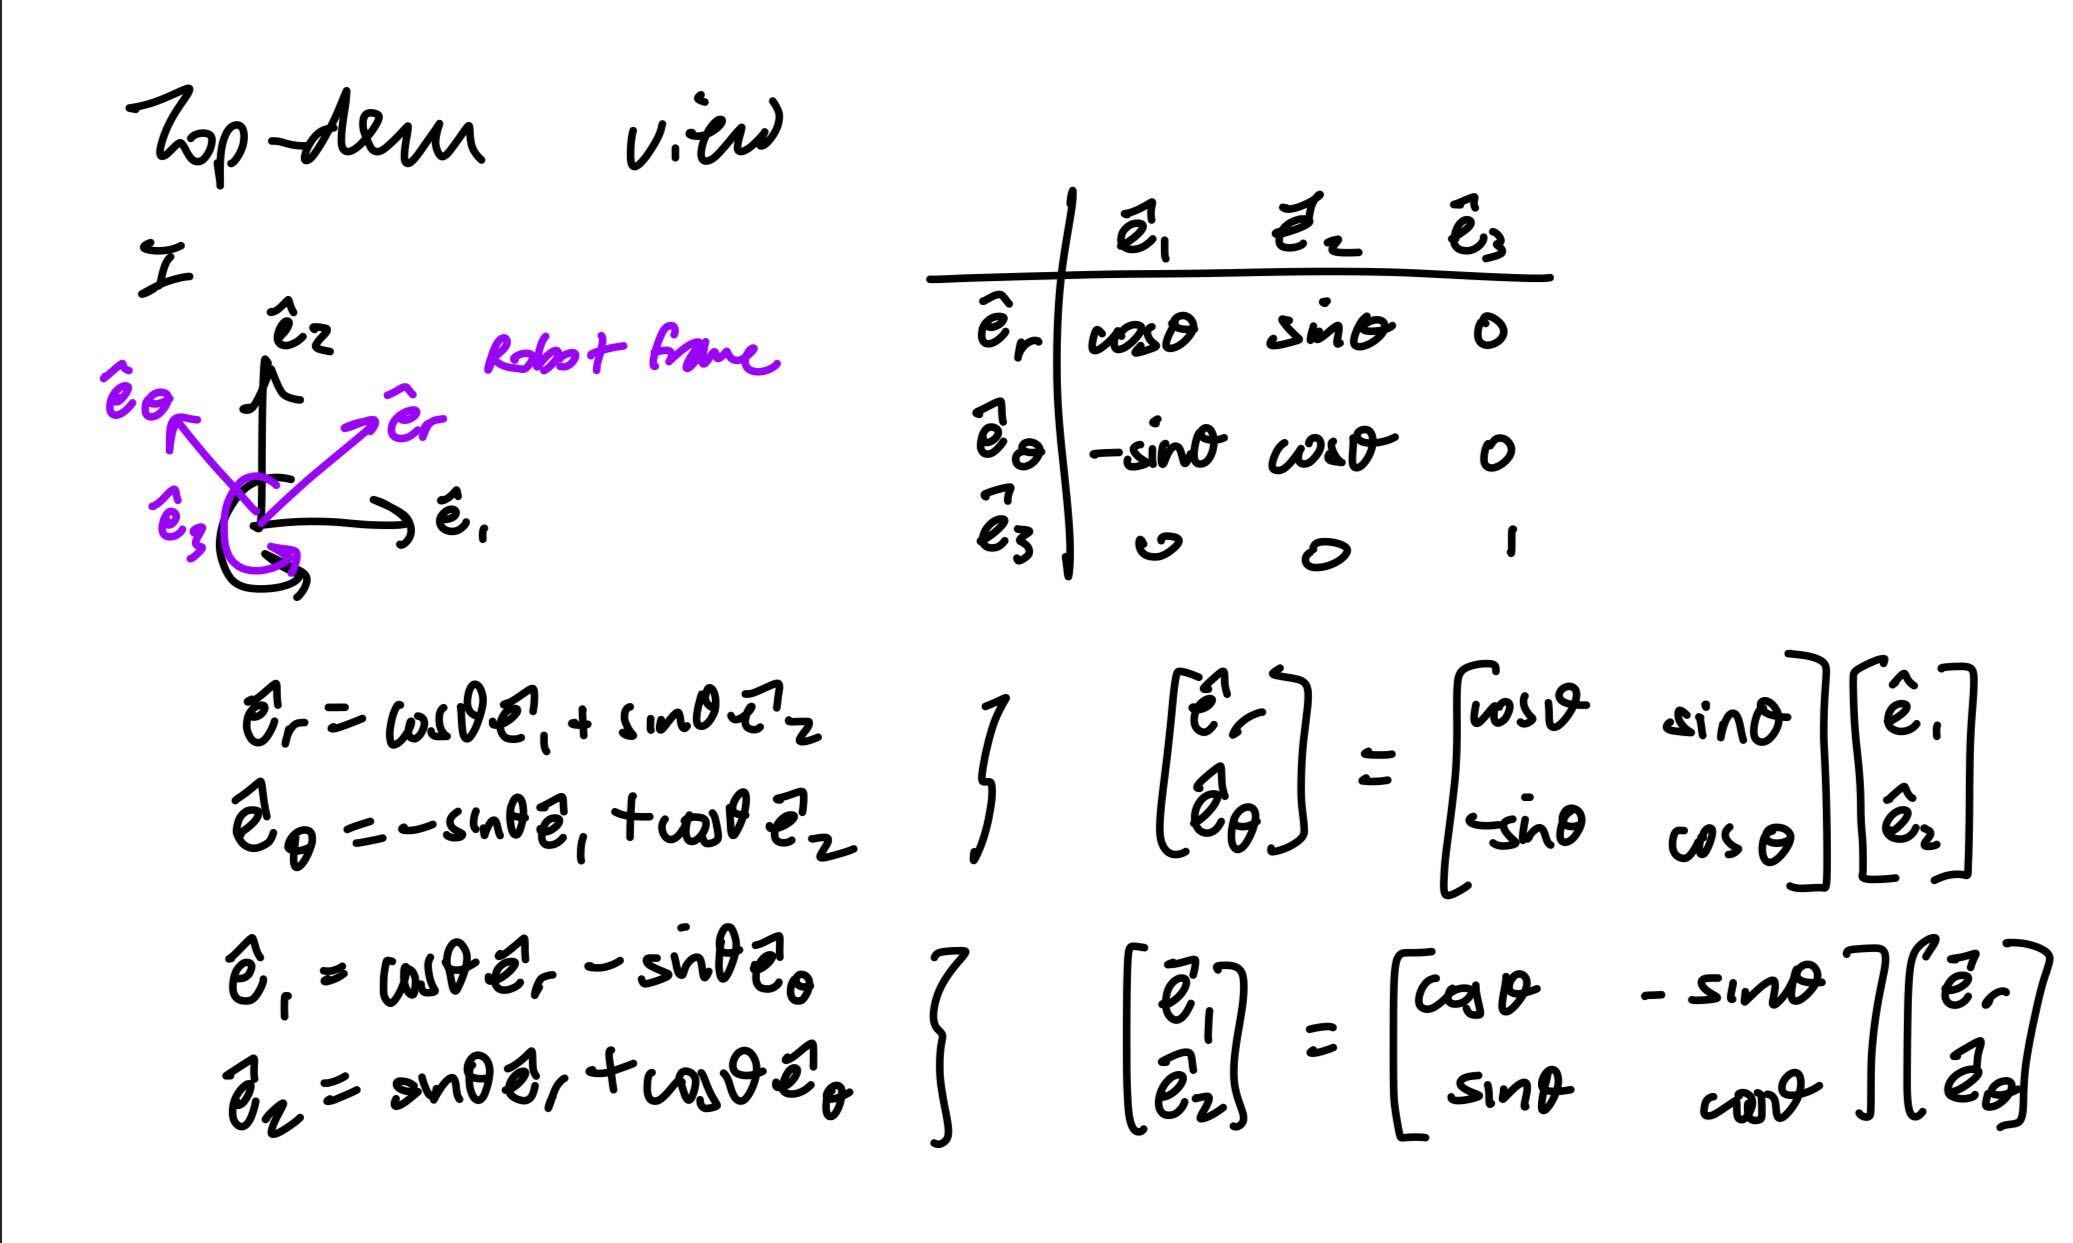 Top-down view
I
ê₂
Robot frame
ê_θ
ê_r
ê₃
ê₁
ê₁ ê₂ ê₃
ê_r cosθ sinθ 0
ê_θ -sinθ cosθ 0
ê₃ 0 0 1
ê_r = cosθ ê₁ + sinθ ê₂
ê_θ = -sinθ ê₁ + cosθ ê₂
} [ê_r ê_θ] = [cosθ sinθ
-sinθ cosθ] [ê₁ ê₂]
ê₁ = cosθ ê_r - sinθ ê_θ
ê₂ = sinθ ê_r + cosθ ê_θ
} [ê₁ ê₂] = [cosθ -sinθ
sinθ cosθ] [ê_r ê_θ]